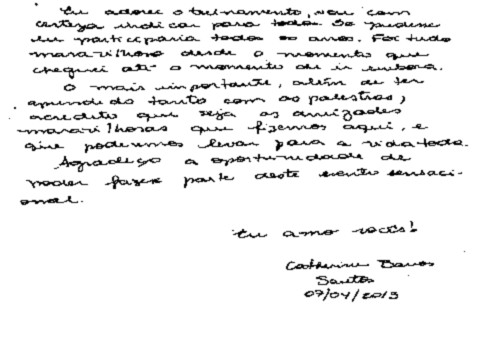 Eu adorei o treinamento, vou com
certeza indicar para todos. Se pudesse
eu participaria todos os anos. Foi tudo
maravilhoso desde o momento que
cheguei até o momento de ir embora.
O mais importante, além de ter
aprendido tanto com as palestras,
acredito que seja as amizades
maravilhosas que fizemos aqui, e
que podemos levar para a vida toda.
Agradeço a oportunidade de
poder fazer parte deste evento sensaci-
onal.
Eu amo vocês!
Catherine Barros
Santos
07/04/2013